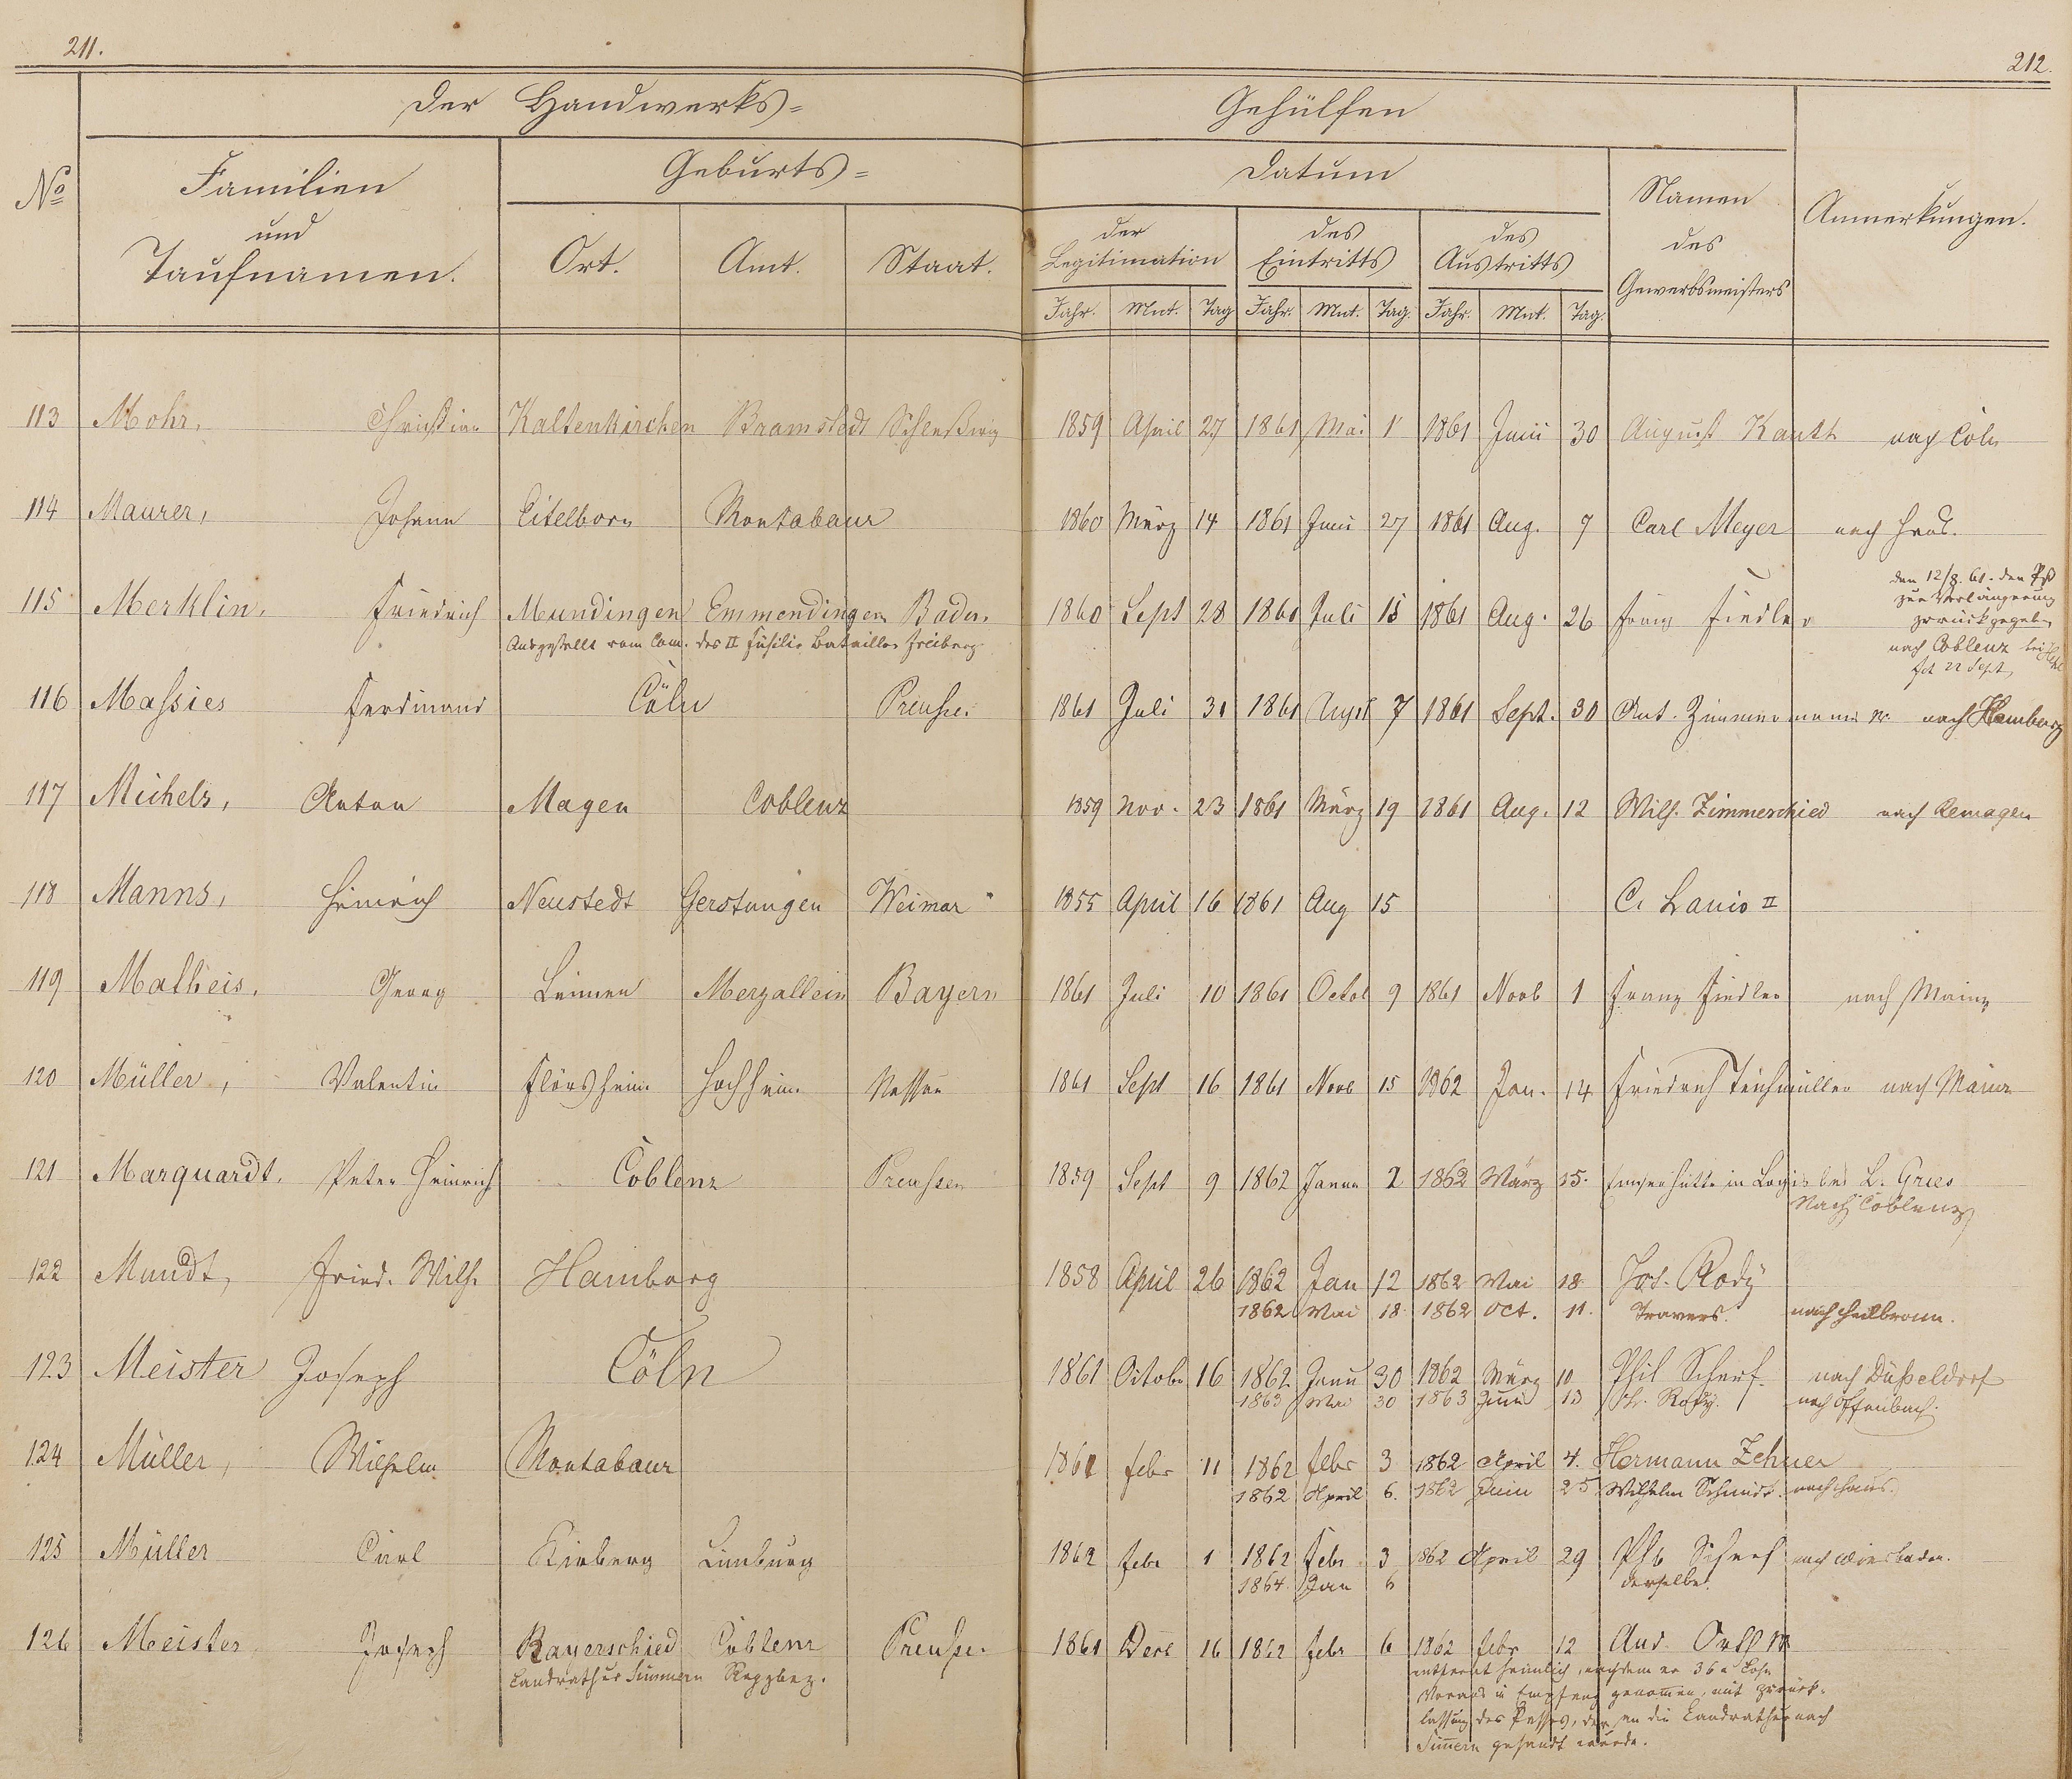 211.
212.
Der Handwerks=
Gehülfen
No
Familien
und
Taufnamen.
Geburts=
Ort.
Amt.
Staat.
Datum
der
Legitimation
des
Eintritts
des
Austritts
Jahr. Mnt. Tag Jahr. Mnt. Tag. Jahr. Mnt. Tag.
Namen
des
Gewerbsmeisters
Anmerkungen.
113 Mohr, Christian Kaltenkirchen Bramstedt 1859 April 27 1861 Mai 1 1861 Juni 30 August Kautt nach Cöln
114 Maurer, Johann Eitelborn Montabaur 1860 März 14 1861 Juni 27 1861 Aug. 7 Carl Meyer nach Haus.
den 12/8. 61. den Pß
zur Verlängerung
zurückgegeben
115 Merklin, Friedrich Mundingen Emmendingen Baden. 1860 Sept 28 1861 Juli 15 1861 Aug. 26 Franz Fiedler
Ausgestellt vom Com. des II Füsilir Bataillon Freiburg.
nach Coblenz bei
22 Sept
116 Massies Ferdinand Cöln Preußen 1861 Juli 31 1861 Augst 7 1861 Sept. 30 Ant. Zimmermann nach Hamburg
117 Michels, Anton Mayen Coblenz 1859 Nov. 23 1861 März 19 1861 Aug. 12 Wilh. Zimmerschied nach Remagen
118 Manns, Heinrich Neustedt Gerstungen Weimar 1855 April 16 1861 Aug 15 C. Lanio II
119 Matheis, Georg Leimen Merzallein Bayern 1861 Juli 10 1861 Octob 9 1861 Novb 1 Franz Fiedler nach Mainz
120 Müller, Valentin Flörsheim Hochheim Nassau 1861 Sept 16 1861 Novb 15 1862 Jan. 14 Friedrich Teichmüller nach Mainz
121 Marquardt, Peter Heinrich Coblenz Preussen 1859 Sept 9 1862 Janua 2 1862 März 15. Emserhütte in Logis bei L. Gries
Nach Coblenz
122 Mundt, Fried. Wilh. Hamburg 1858 April 26 1862 Jan 12 1862 Mai 18. Jos. Rody
1862 Mai 18. 1862 Oct. 11. Travers. nach Heilbronn.
123 Meister Joseph Cöln 1861 Octobr 16 1862 Janu 30 1862 März 10 Phil Scherf. nach Düßeldorf
1863 Mai 30 1863 Juni 13 nach Offenbach.
124 Müller, Wilhelm Montabaur 1861 Febr 11 1862 Febr 3 1862 April 4. Hermann Zehner
1862 April 6. 1862 Juni 25 Wilhelm Schmidt. nach Haus.
125 Müller Carl Kirberg Limburg 1862 Febr 1 1862 Febr 3 1862 April 29 Phil Scherf nach Wiesbaden.
1864. Jan 6 derselbe.
126 Meister, Joseph Bayerschied Coblenz Preußen 1861 Decb 16 1862 Febr 6 1862 Febr 12 And. Orth
Landrathur Simmern Regzbez.
entfernt heimlich, nachdem er 36 x Lohn
Voraus in Empfang genommen, mit Zurück-
lassung des Passes, der an die Landrathur nach
Simmern gesandt wurde.